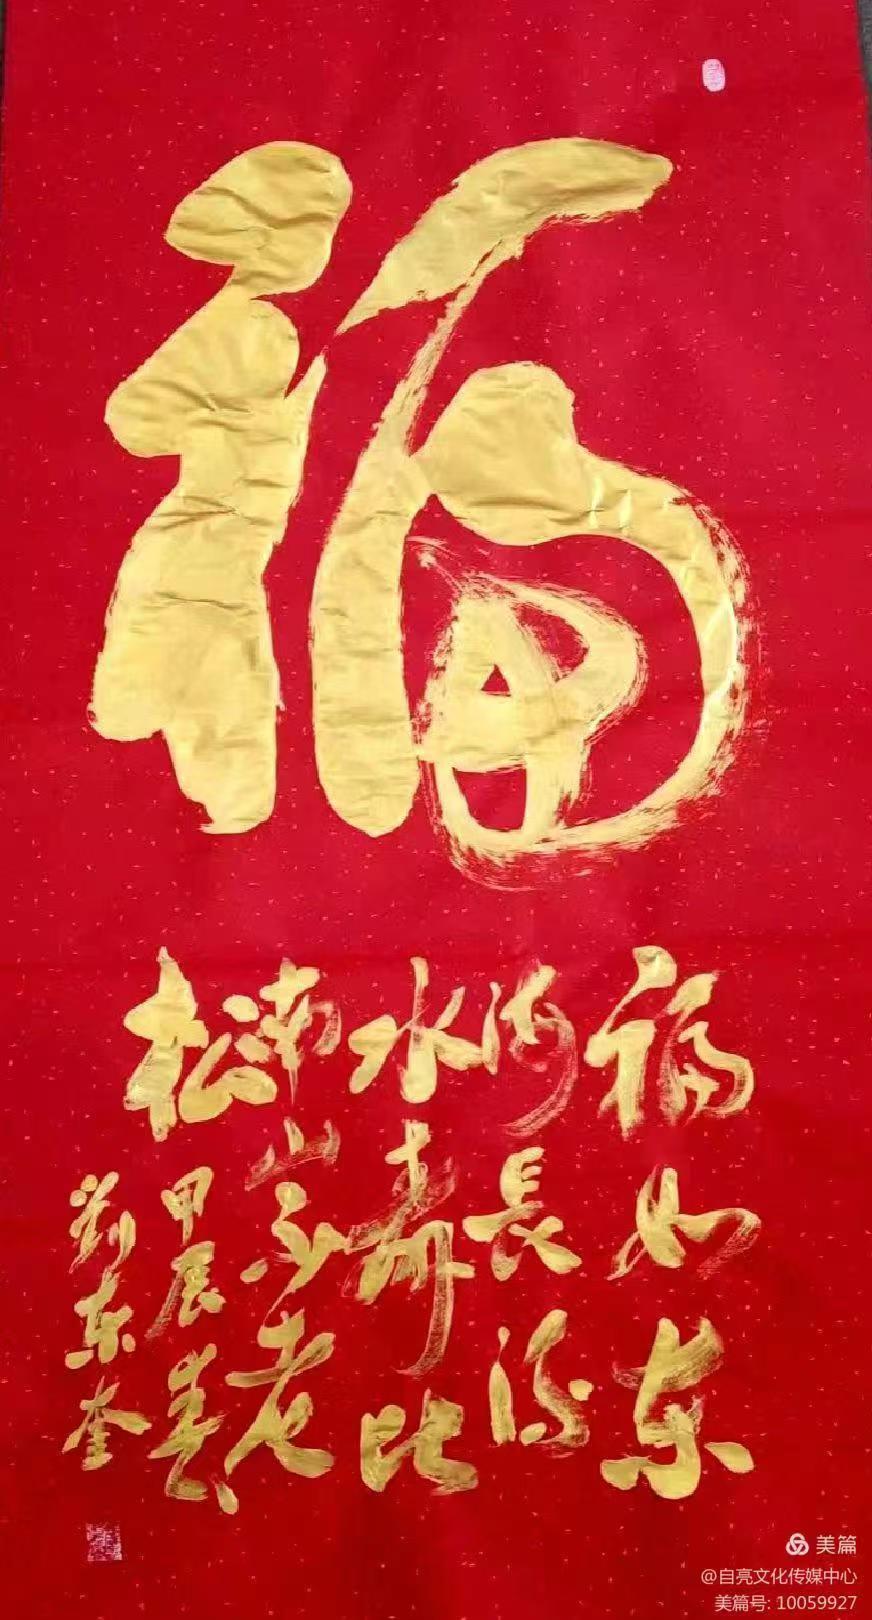 福
福如东
海長流
水寿比
南山不老
松
甲辰春
劉东奎
美篇
@自亮文化传媒中心
美篇号: 10059927